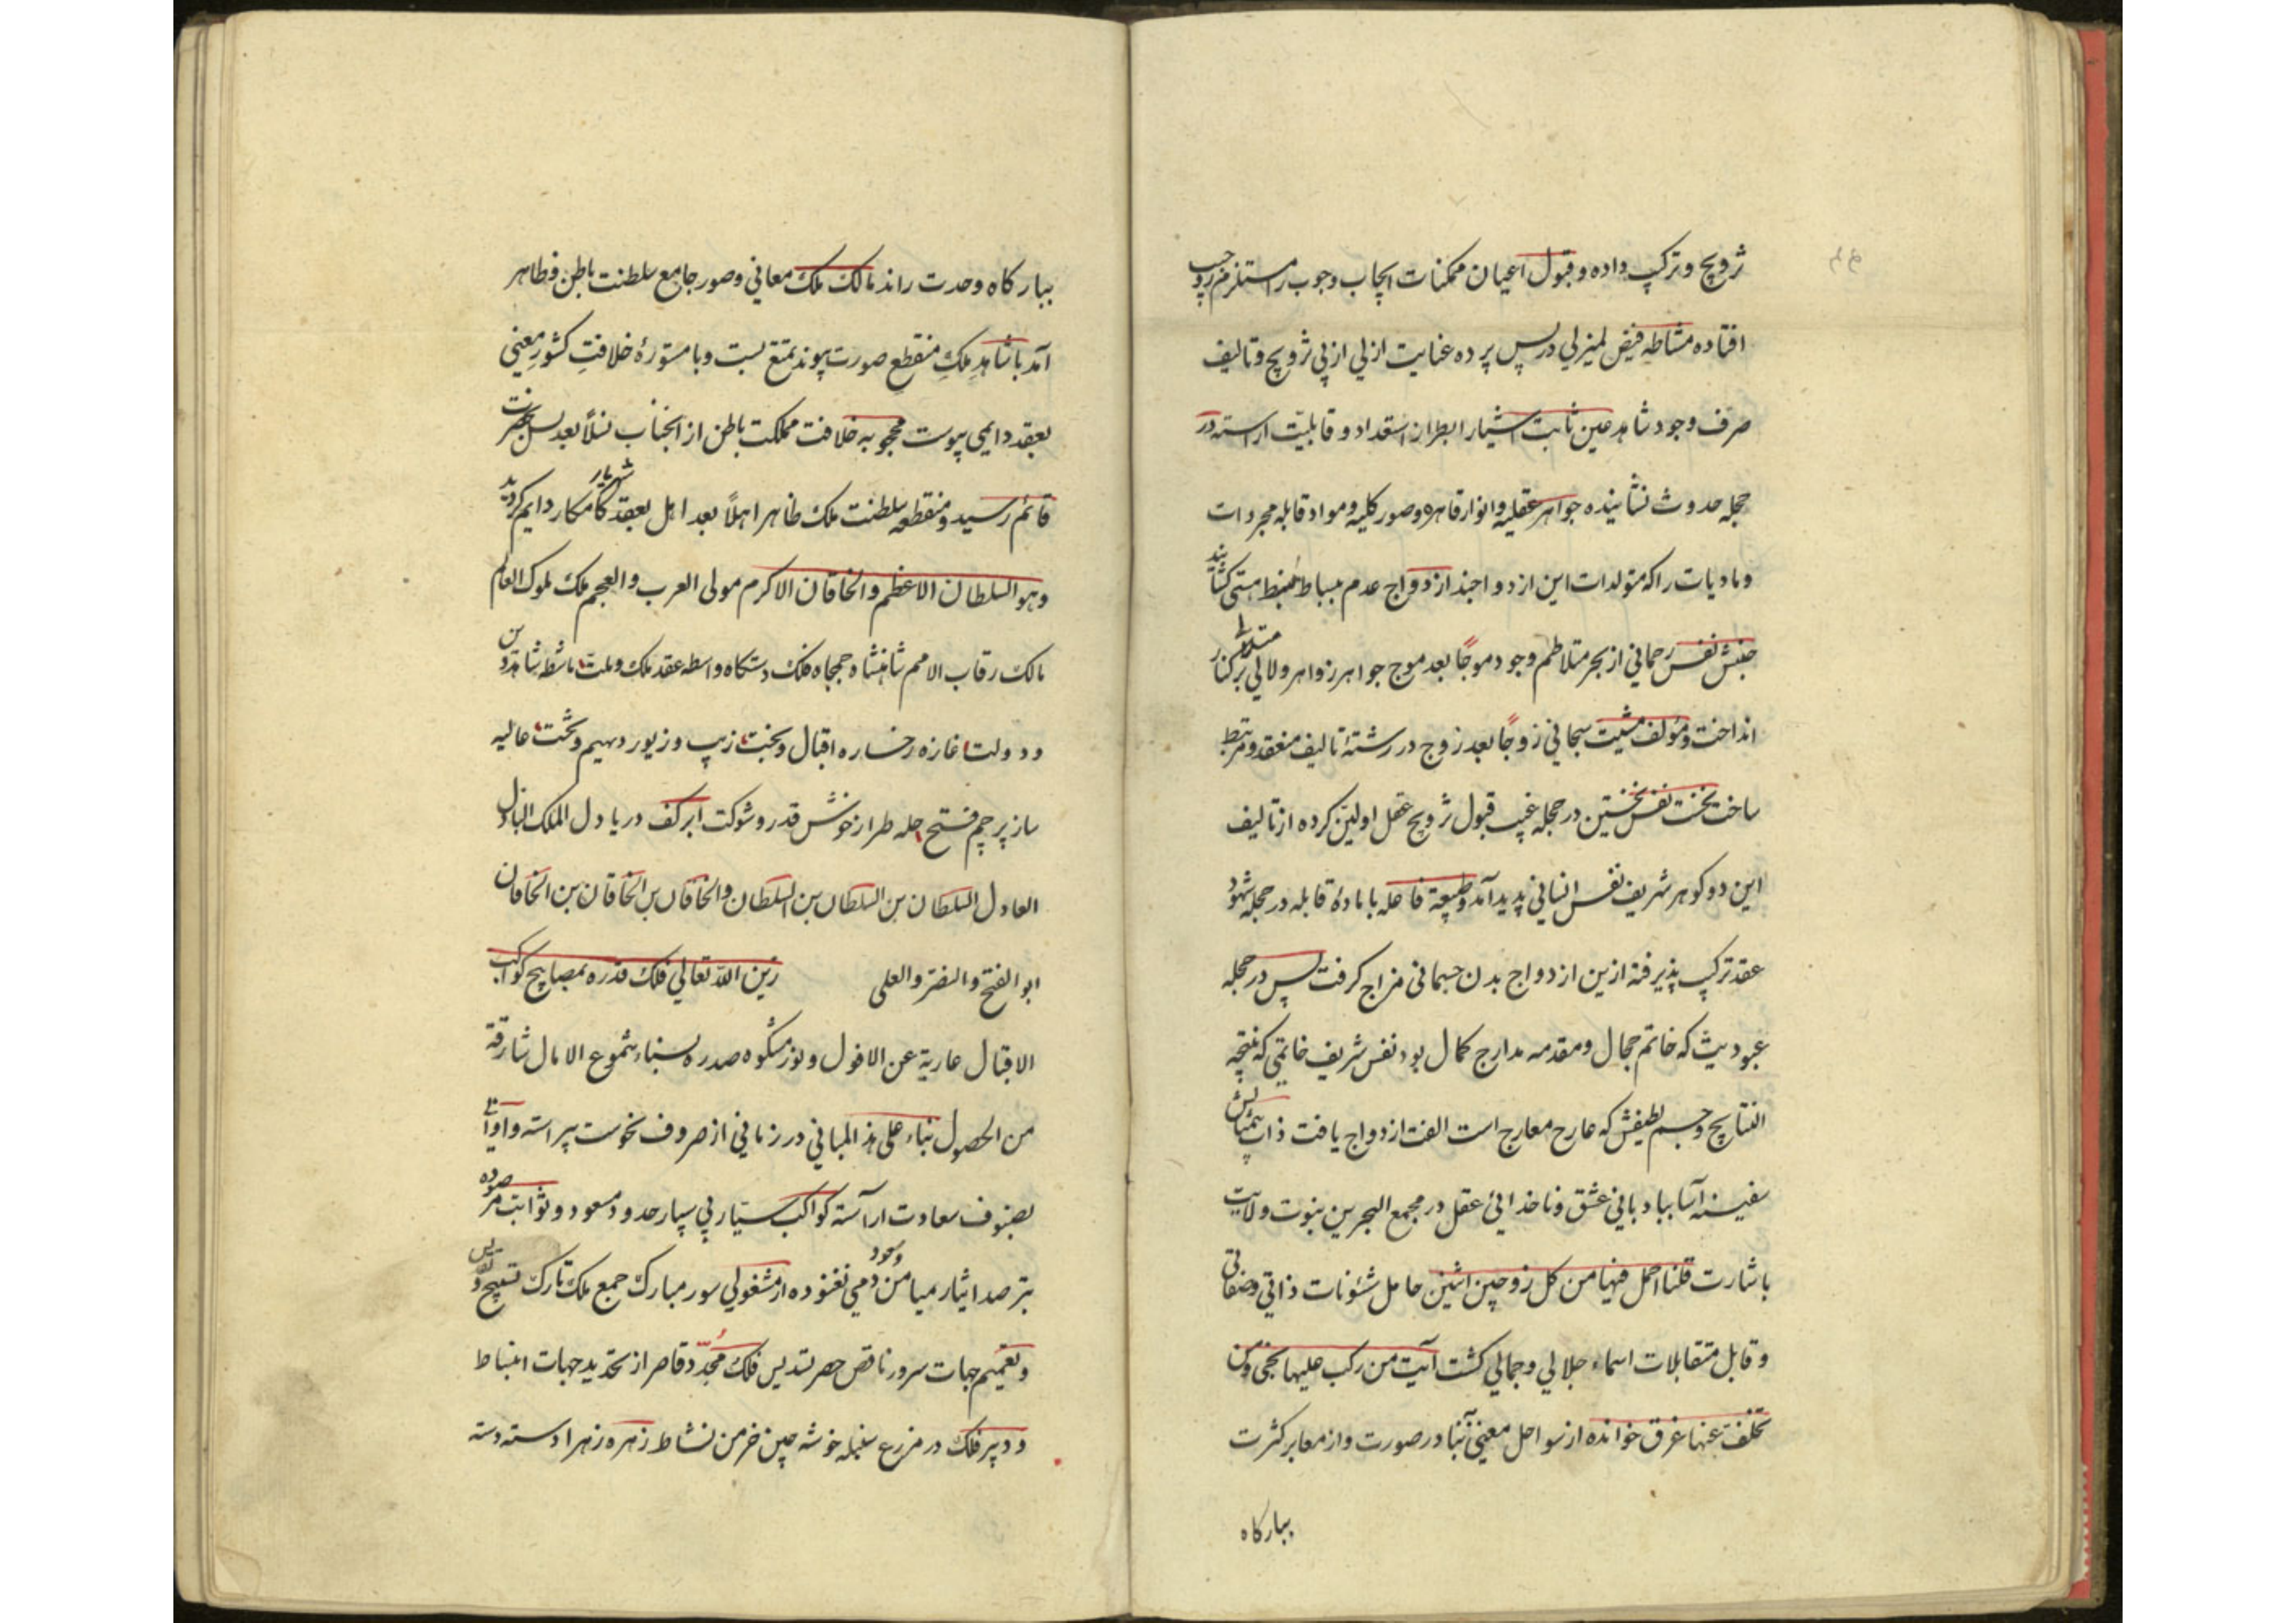 تزویج و ترکیب داده و قبول اعیان ممکنات ایجاب وجوب را مستلزم زوجیت
افتاده مشاطه فیض لمیزلی در پس پرده عنایت ازلی از پی تزویج و تالیف
صرف وجود شاهد عین ثابت اشیا را بطراز استعداد و قابلیت اراسته در
حجله حدوث نشانیده جواهر عقلیه و انوار قاهره و صور کلیه و مواد قابله مجردات
و مادیات را که متولدات این ازدواجند از دواج عدم ببساط منبسط هستی کشانید
جنبش نفس رحمانی از بحر متلاطم وجود موجًا بعد موج جواهر زواهر و لالی بر کنار
انداخت و مولف مشیت سبحانی زوجًا بعد زوج در رشتهٔ تالیف منعقد و مرتبط
ساخت نخست نفس نخستین در حجله غیب قبول تزویج عقل اولین کرده از تالیف
این دو کوهر شریف نفس انسانی پدید آمد و طبیعة فاعله با مادهٔ قابله در حجله شهود
عقد ترکیب پذیرفته ازین ازدواج بدن جسمانی مزاج کرفت پس در حجله
عبودیت که خاتم حجال و مقدمه مدارج کمال بود نفس شریف خاتمی که نتیجه
النتایج و جسم لطیفش که عارج معارج است الفت ازدواج یافت ذات
سفینه آسا ببادبانی عشق و ناخدائی عقل در مجمع البحرین نبوت و ولایت
باشارت قلنا احمل فیها من کل زوجین اثنین حامل شئونات ذاتی و صفاتی
و قابل متقابلات اسماء جلالی و جمالی کشت آیت من رکب علیها نجی و من
تخلف عنها غرق خوانده از سواحل معنی آنبا در صورت و از معابر کثرت
ببارکاه
ببارکاه وحدت راند مالک ملک معانی و صور جامع سلطنت باطن و ظاهر
آمد با شاهدِ ملکِ منقطعِ صورت پیوند تمتع بست و با مستورهٔ خلافتِ کشورِ معنی
بعقد دایمی پیوست محجوبه خلافت مملکت باطن از انجناب نسلًا بعد نسل بحضرت
قائم رسید و منقطعه سلطنت ملک ظاهر اهلًا بعد اهل بعقد شهریار کامکار دایم کردید
و هو السلطان الاعظم و الخاقان الاکرم مولی العرب و العجم ملک ملوک العالم
مالک رقاب الامم شاهنشاه جمجاه فلک دستکاه واسطه عقد ملک و ملت ماشطه شاهد دین
و دولت غازه رخساره اقبال و بخت زیب و زیور دیهیم و تخت عالیه
ساز پرچم فتح حله طراز خوش قدر و شوکت ابر کف دریا دل الملک الباذل
العادل السلطان بن السلطان بن السلطان و الخاقان بن الخاقان بن الخاقان
ابو الفتح و النصر و العلی زین الله تعالی فلک قدره بمصابیح کواکب
الاقبال عاریة عن الافول و نور مشکوه صدره بسناء شموع الامال شارقة
من الحصول بناء علی هذ المبانی در زمانی از صروف نحوست پیراسته و اوانی
بصنوف سعادت اراسته کواکب سیار پی سپار حدود مسعود و ثوابت مرصوده
بترصد ایثار میامن و سعود دمی نغنوده از مشغولی سور مبارک جمع ملک تارک تسبیح و تقدیس
و تعمیم جهات سرور ناقص حصر تسدیس فلک مُجدّد قاصر از تحدید جهات انبساط
و دبیر فلک در مزرع سنبله خوشه چین خرمن نشاط زهره زهرا دسته دسته